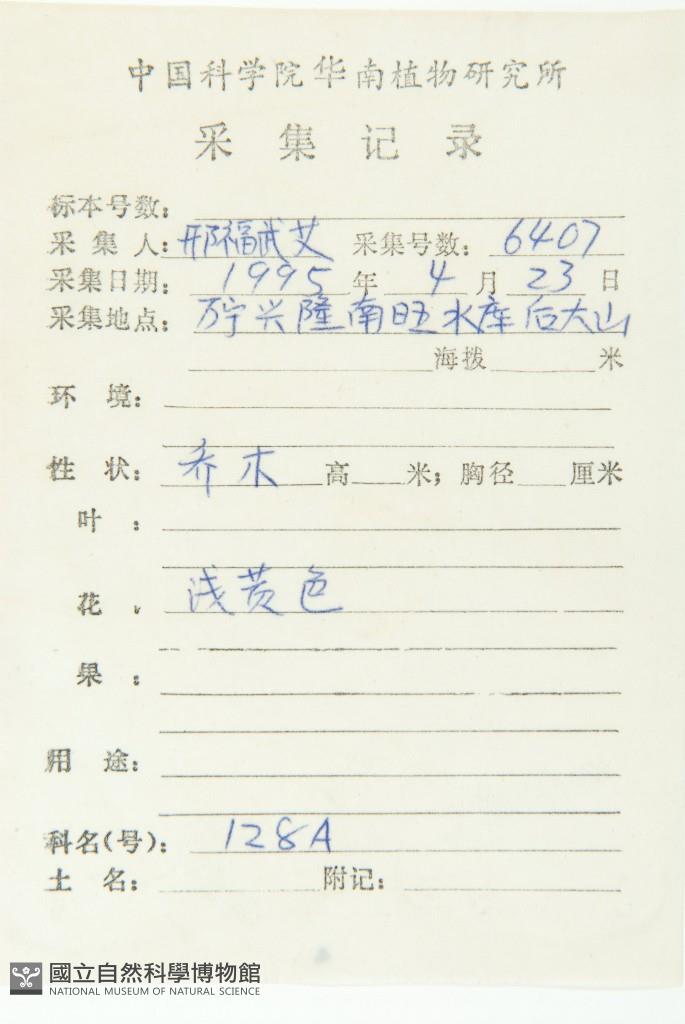 中国科学院华南植物研究所
采集记录
标本号数：
采集人：邢福武艾 采集号数：6407
采集日期：1995年4月23日
采集地点：万宁兴隆南旺水库后大山
海拨 米
环境：
性状：乔木 高 米；胸径 厘米
叶：
花：浅黄色
果：
用途：
科名(号)：128A
土名： 附记：
國立自然科學博物館
NATIONAL MUSEUM OF NATURAL SCIENCE